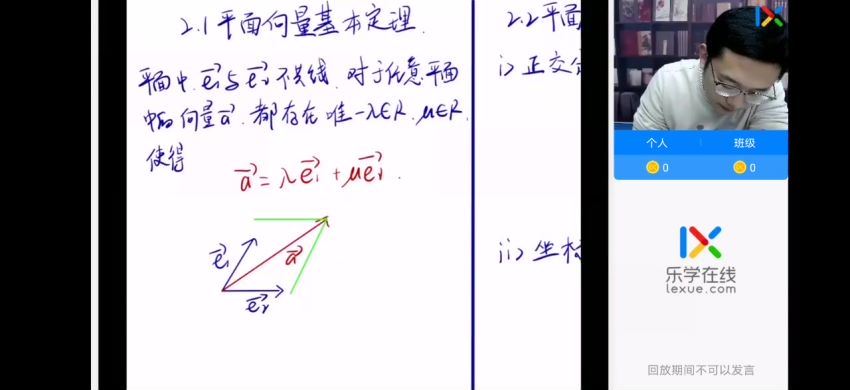 2.1 平面向量基本定理.
平面中 e₁与e₂不共线. 对于任意平面
中的向量a. 都存在唯一λ∈R. μ∈R.
使得
a = λe₁ + μe₂.
e₁
a
e₂
2.2 平面
i> 正交
ii> 坐标
个人 班级
0 0
乐学在线
lexue.com
回放期间不可以发言